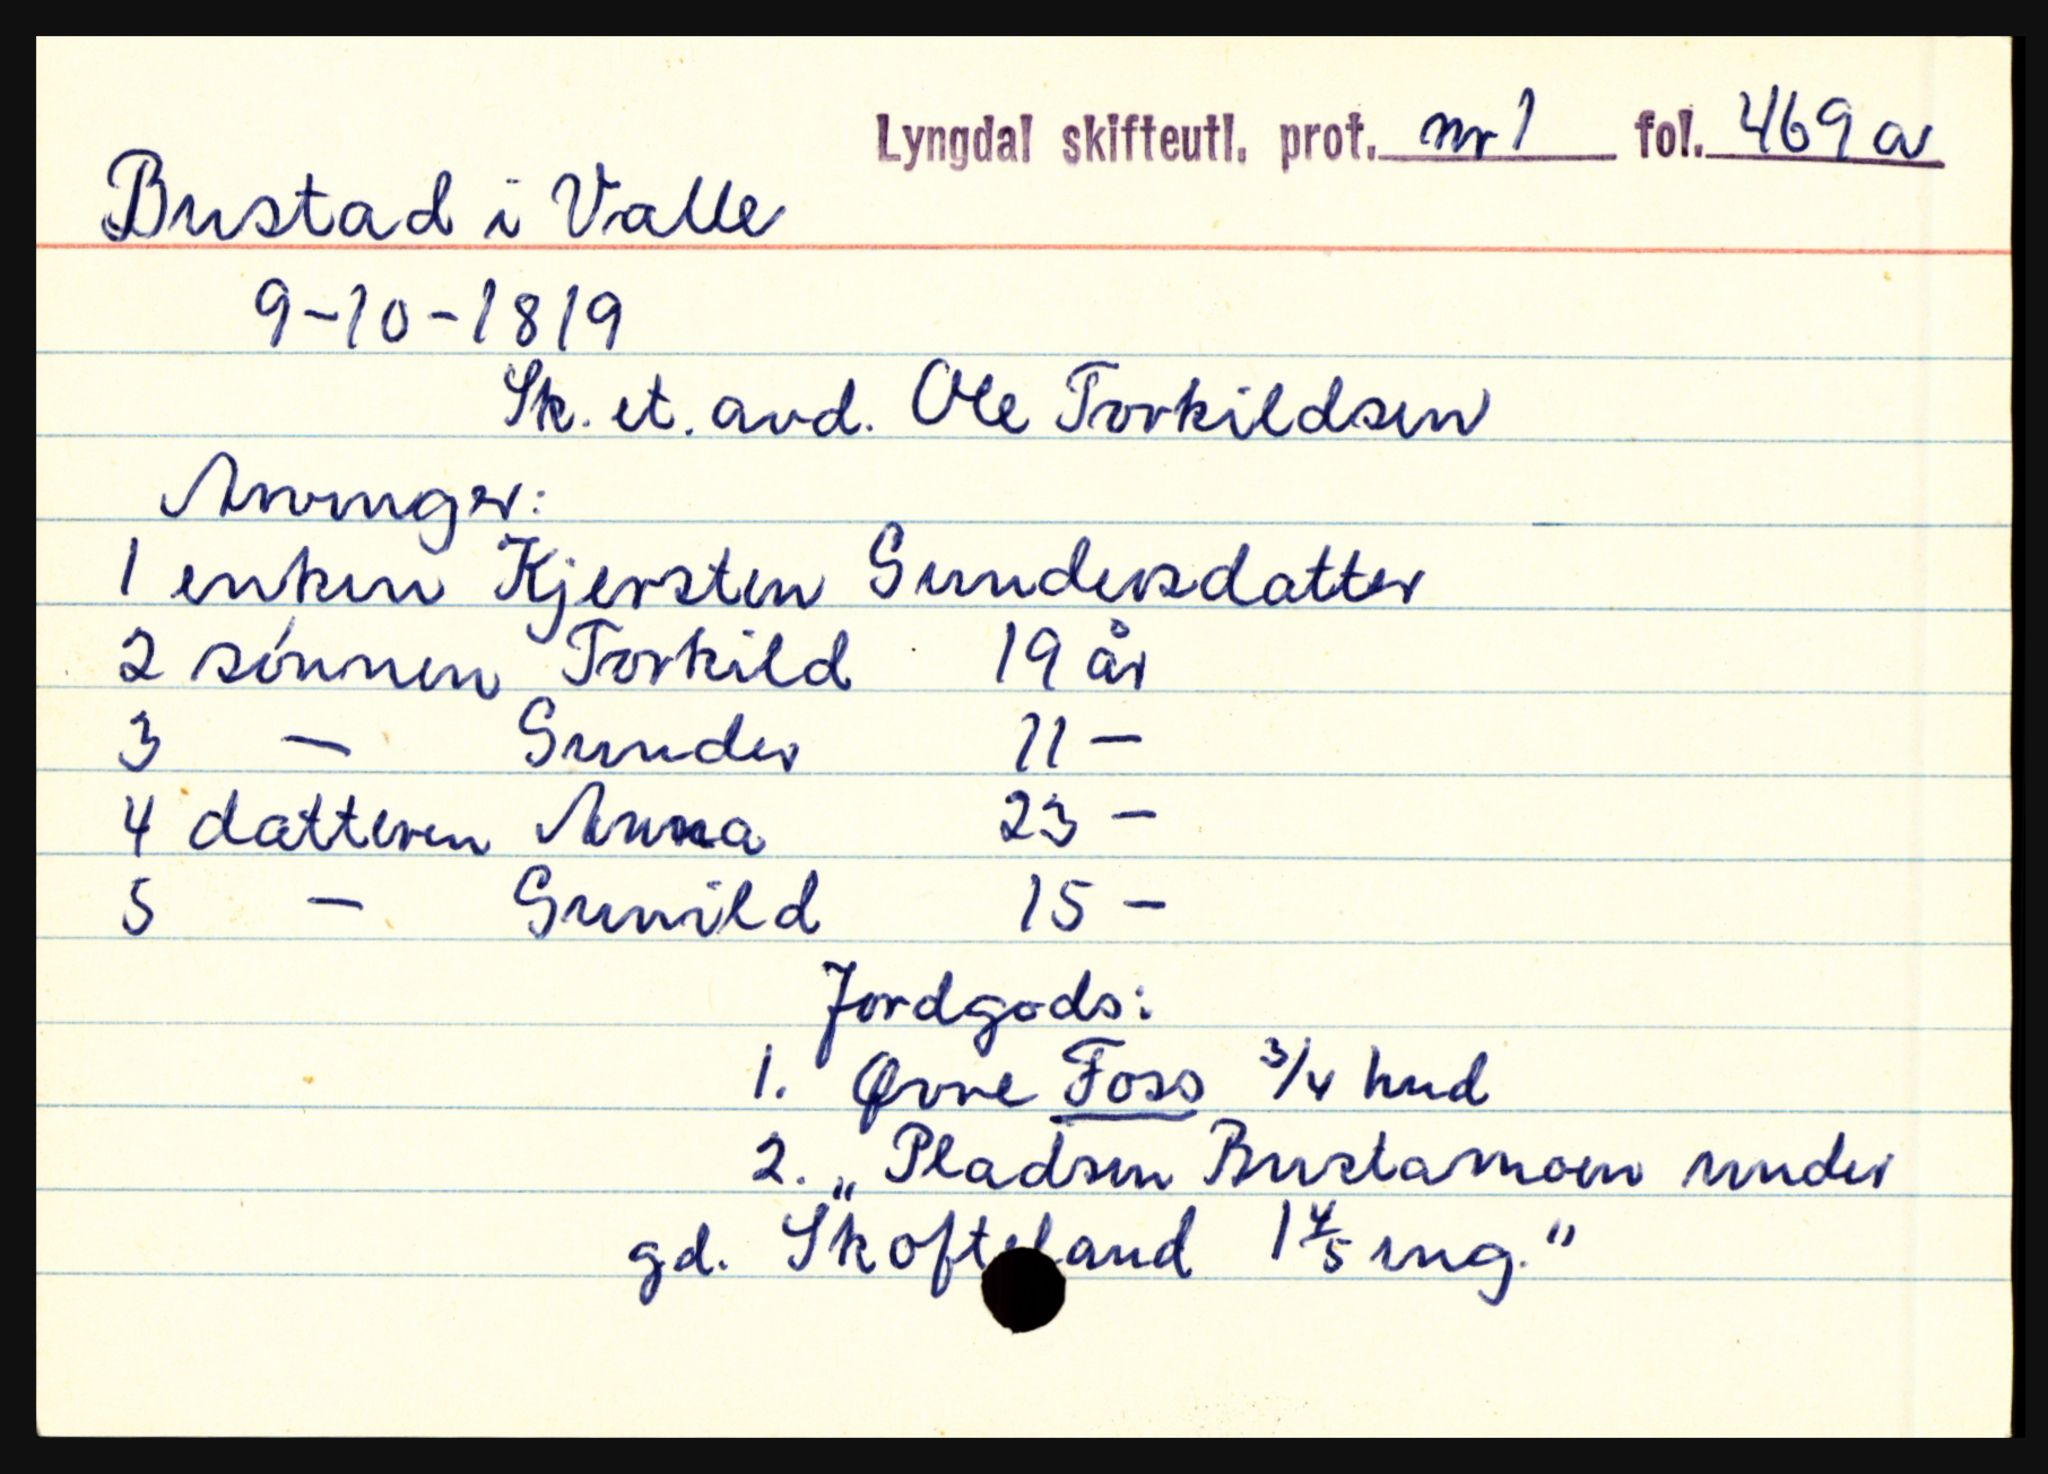 Lyngdal skifteutl. prot. nr 1 fol. 469 a
Bustad i Valle
9-10-1819
Sk. et. avd. Ole Torkildsen
Arvinger:
1 enken Kjersten Gundersdatter
2 sønnen Torkild 19 år
3 — Gunder 11 —
4 datteren Anna 23 —
5 — Gunild 15 —
Jordgods:
1. Øvre Foss 3/4 hud
2. „Pladsen Bustamoen under
gd. Skofteland 1 4/5 eng."